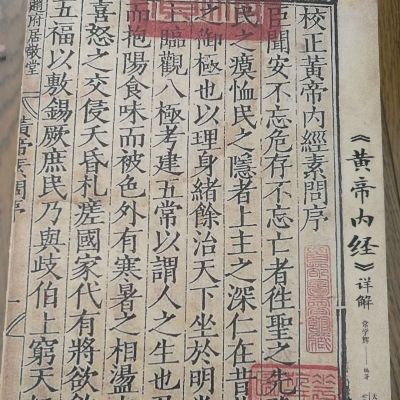 《黄帝内经》详解
常学辉 编著
校正黃帝內經素問序
臣聞安不忘危存不忘亡者徃聖之先
民之瘼恤民之隱者上主之深仁在昔
之御極也以理身緒餘治天下坐於明
臨觀八極考建五常以謂人之生也
而抱陽食味而被色外有寒暑之相盪
喜怒之交侵夭昏札瘥國家代有將欲
五福以敷錫厥庶民乃與歧伯上窮天
趙府居敬堂
黃帝素問序